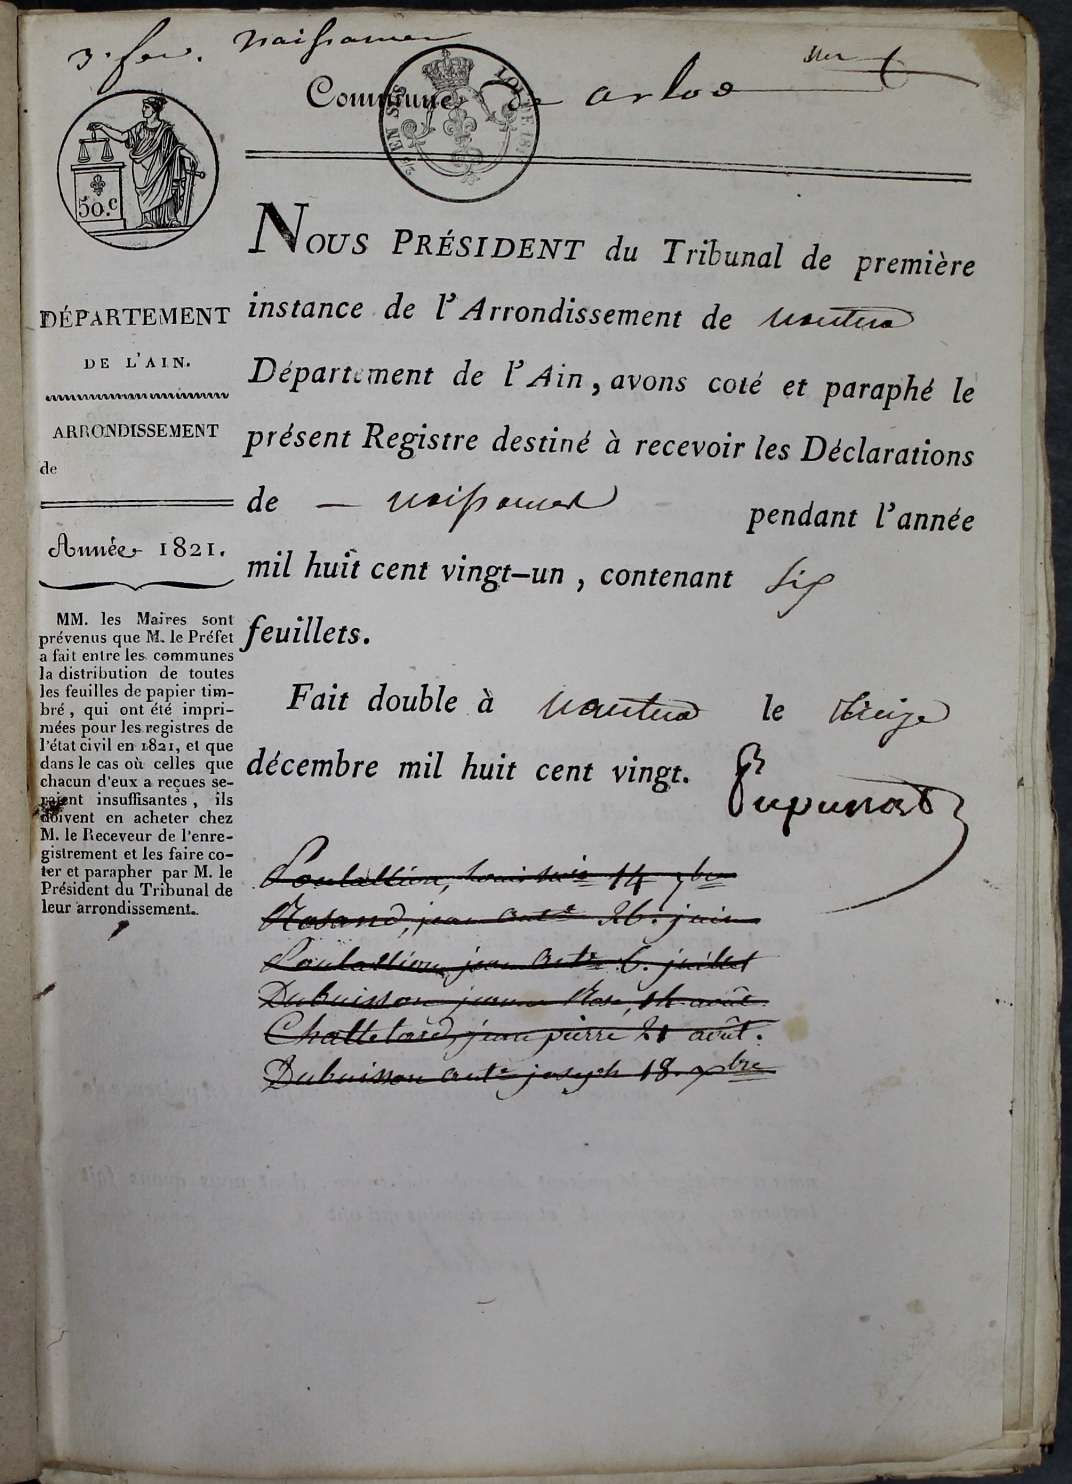 3. feu. Naissances
Commune de arlod
LOI DE 18
EN SUS
50.c
DÉPARTEMENT
DE L'AIN.
ARRONDISSEMENT
de
Année 1821.
MM. les Maires sont
prévenus que M. le Préfet
a fait entre les communes
la distribution de toutes
les feuilles de papier tim-
bré, qui ont été impri-
mées pour les registres de
l'état civil en 1821, et que
dans le cas où celles que
chacun d'eux a reçues se-
raient insuffisantes, ils
doivent en acheter chez
M. le Receveur de l'enre-
gistrement et les faire co-
ter et parapher par M. le
Président du Tribunal de
leur arrondissement.
NOUS PRÉSIDENT du Tribunal de première
instance de l'Arrondissement de nantua
Département de l'Ain, avons coté et paraphé le
présent Registre destiné à recevoir les Déclarations
de — naissances pendant l'année
mil huit cent vingt-un, contenant six
feuillets.
Fait double à nantua le treize
décembre mil huit cent vingt.
14 7bre
jean ante 26. juin
jean ante 6. juillet
Dubuisson jeanne Rose, 14 août
Chattelard, jean pierre 21 août.
Dubuisson ante joseph 18. xbre